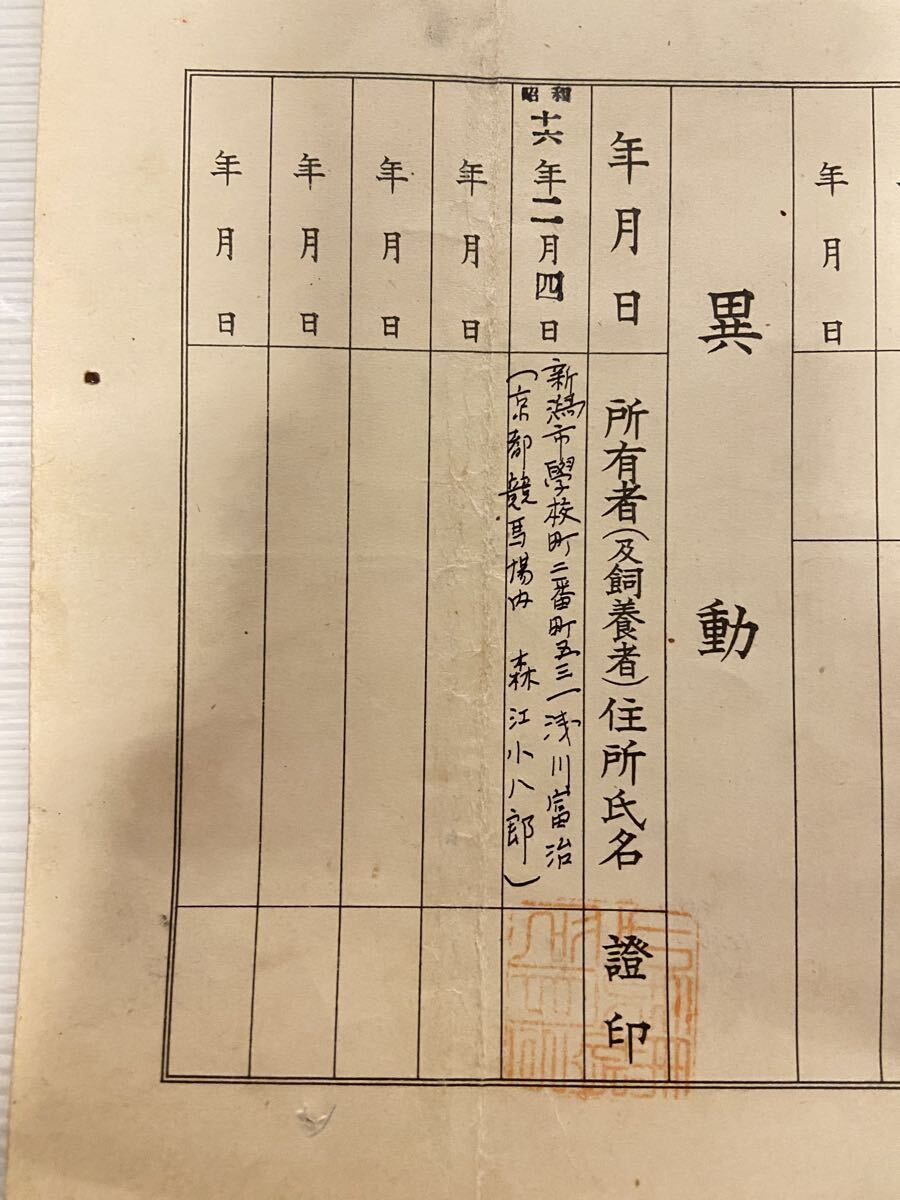 年 月 日
異動
年月日
所有者(及飼養者)住所氏名
證印
昭和十六年二月四日
新潟市學校町二番町五三一浅川富治
(京都競馬場内 森江小八郎)
年 月 日
年 月 日
年 月 日
年 月 日